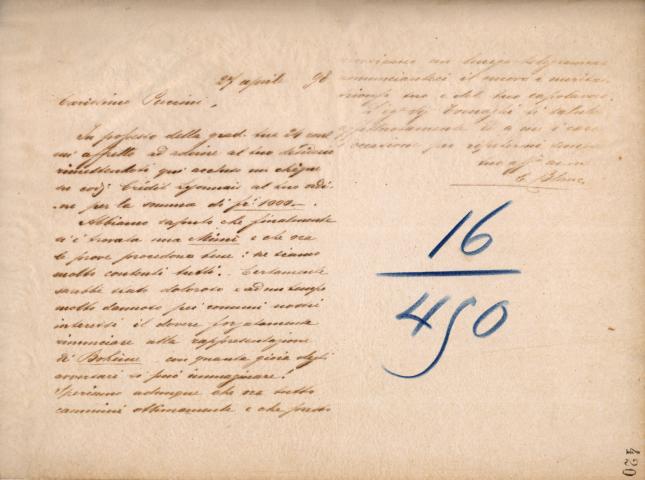 27 aprile 98
Carissimo Puccini,
In possesso della grad. tua 24 corr.
mi affretto ad aderire al tuo desiderio
rimettendoti qui accluso un chèque
su codº Crédit Lyonnais al tuo ordi-
ne per la somma di frⁱ 1000.—.
Abbiamo saputo che finalmente
si è trovata una Mimì e che ora
le prove procedono bene: ne siamo
molto contenti tutti. Certamente
sarebbe stato doloroso e ad un tempo
molto dannoso pei comuni nostri
interessi il dovere forzatamente
rinunciare alla rappresentazione
di Bohème con quanta gioia degli
avversari si può immaginare!
Speriamo adunque che ora tutto
cammini ottimamente e che presto
un lungo telegramma
annunciantici il nuovo e meritato
trionfo tuo e del tuo capolavoro.
Il sigʳ Tornaghi ti saluta
affettuosamente e a me è cara
l'occasione per ripetermi sempre
tuo affº amico
C. Blanc
16
450
420